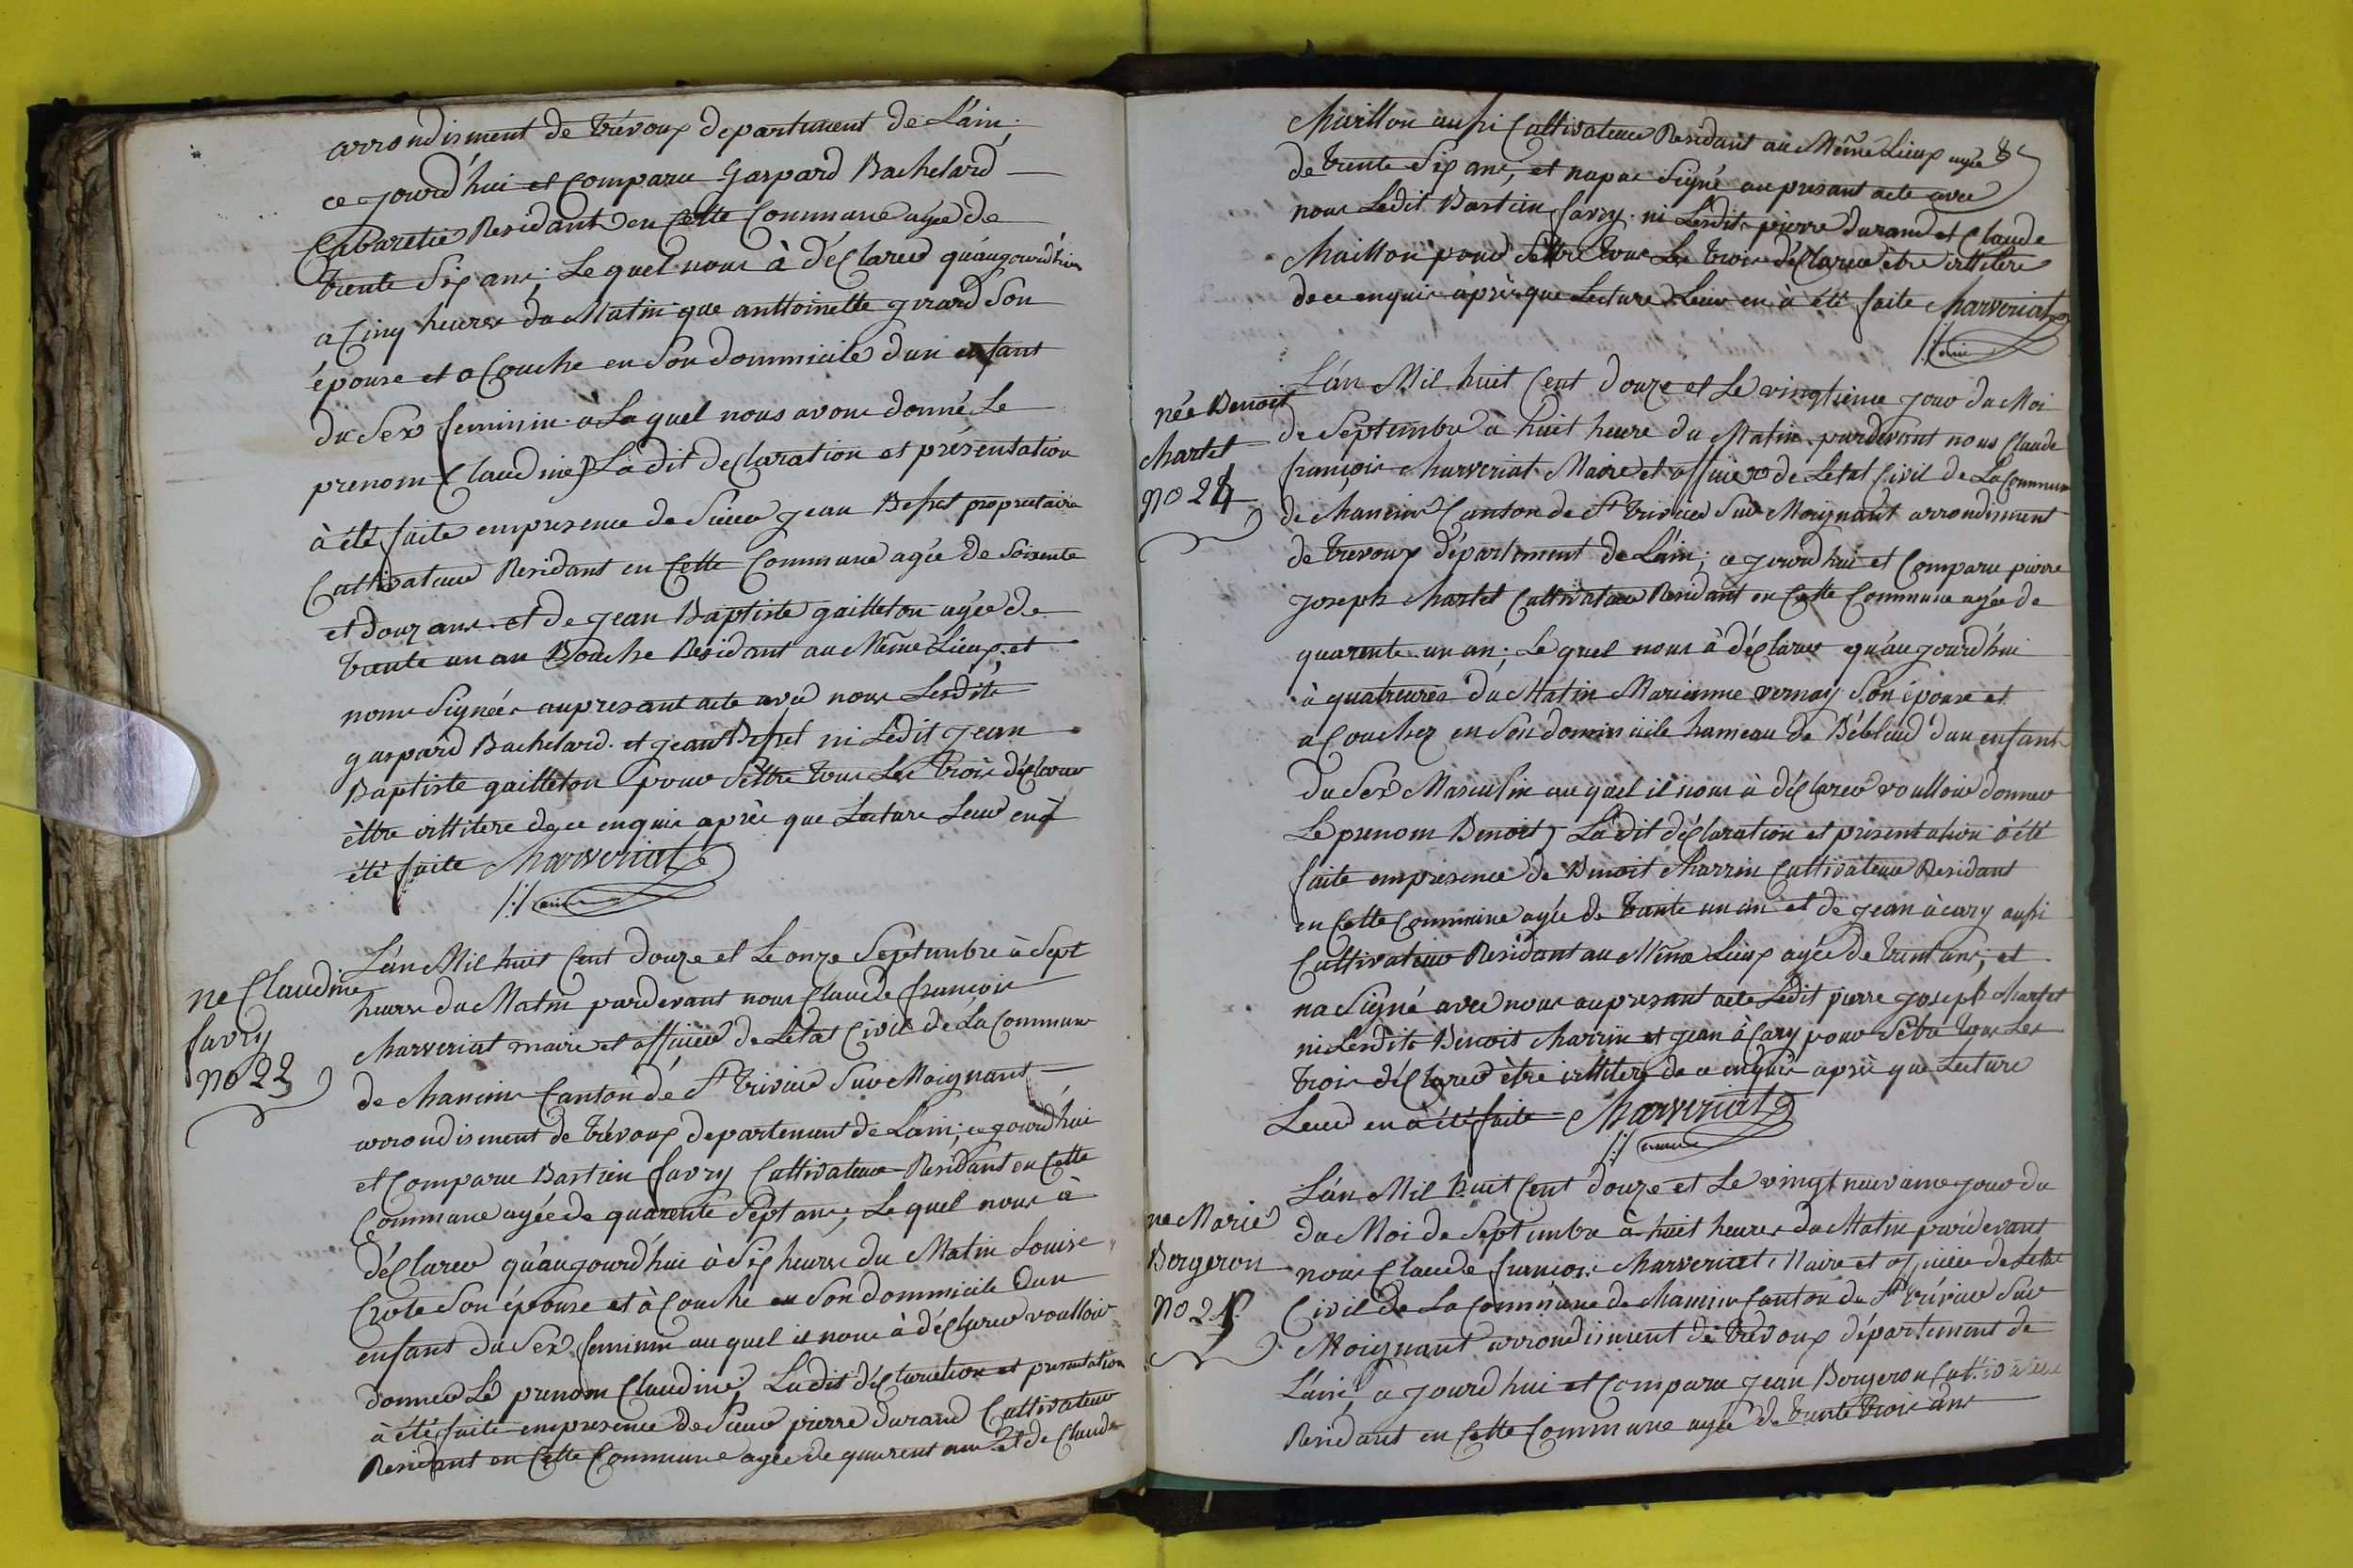 arrondisment de trévoux departement de L'ain;
ce jourd'hui et Comparu gaspard Bachelard
Cabaretié Residant en Cette Commune agée de
trente Six ans; Le quel nous à déClareu qu'augourd'hui
a Cinq heures du Matin que anttoinette girard Son
épouse et a Couche en Son dommicile d'un enfant
du Sex feminin à La quel nous avons donné Le
prenom Claudine La dit deClaration et présentation
à été faite empresence de Sieur jean propriétaire
Cultivateur Residant en Cette Commune agée de Soixente
et douz ans et de jean Baptiste gailleton agée de
trente un an Residant au Même Lieux et
nous Signées aupresant acte avec nous Lesdits
gaspard Bachelard et jean ni Ledit jean
Baptiste gailleton pour Settre tous Les trois déClareu
èttre ittitere de ce enquis après que Lecture Leur en à
été faite Charveriat
ne Claudine
favry
no 23
L'an Mil huit Cent douze et Le onze Septembre à Sept
heures du Matin pardevant nous Claude françois
Charveriat maire et officier de Létat Civil de La Commune
de Chaneins Canton de St trivier Sur Moignant
arrondisment de trévoux departement de Lain; ce jourd'hui
et Comparu Bastien favry Cultivateur Residant en Cette
Commune agée de quarente Sept ans; Le quel nous à
déClareu qu'augourd'hui à Six heures du Matin Louise
Crote Son épouse et à Couche en Son dommicile dun
enfant du Sex feminin au quel il nous à déClareu voulloir
donneu Le prenom Claudine; Ladit déClaration et presentation
à été faite empresence de Sieur pierre durand Cultivateur
Residant en Cette Commune agée de quarent ans et de Claude
Chaillon aussi Cultivateur Residant au Même Lieux agée
de trente Six ans, et napas Signé aupresant acte avec
nous Ledit Bastien favry ni Lesdits pierre durand et Claude
Chaillon pour Settre tous Les trois déClareu être ittitere
de ce enquis après que Lecture Leur en à été faite Charveriat
née Benoit
Chartet
no 24
L'an Mil huit Cent douze et Le vingtieme jour du Moi
de Septembre à huit heure du Matin pardevant nous Claude
françois Charveriat Maire et officier de Letat Civil de La Commune
de Chaneins Canton de St trivier Sur Moignant arrondisment
de trevoux département de L'ain; ce jourd'hui et Comparu pierre
joseph Chartet Cultivateur Residant en Cette Commune agée de
quarente un an; Le quel nous à déClareu qu'augourd'hui
à quatreures du Matin Marianne vernay Son épouse et
a Couchez en Son dommicile hameau de d'un enfant
du Sex Masculin au quel il nous à déClareu voulloir donneu
Le prenom Benoit; La dit déClaration et présentation à été
faite emprésence de Benoit Charrin Cultivateur Residant
en Cette Commune agée de trante un an et de jean àcary aussi
Cultivateur Residant au Même Lieux agée de trent ans; et
na Signé avec nous aupresant acte Ledit pierre joseph Chartet
ni Lesdits Benoit Charrin et jean à Cary pour Sètre tous Les
trois déClareu être ittitere de ce enquis après que Lecture
Leur en à été faite Charveriat
ne Marie
Bergeron
no 25
L'an Mil huit Cent douze et Le vingt neuvieme jour du
du Moi de Septembre à huit heures du Matin pardevant
nous Claude françois Charveriat Maire et officier de Létat
Civil de La Commune de Chaneins Canton de St trivier Sur
Moignant arrondisment de trevoux département de
L'ain; ce jourd'hui et Comparu jean Bergeron Cultivateur
Residant en Cette Commune agée de trente trois ans